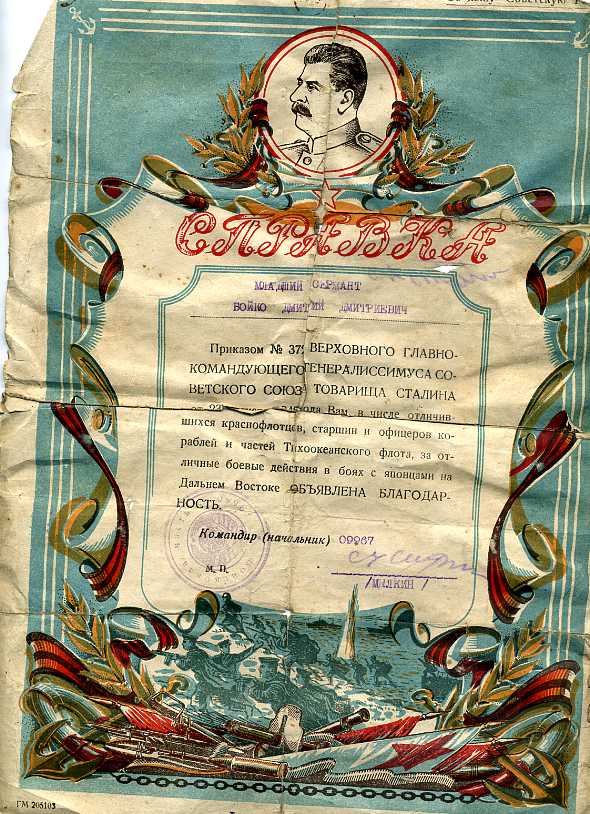 СПРАВКА
МЛАДШИЙ СЕРЖАНТ
БОЙКО ДМИТРИЙ ДМИТРИЕВИЧ
Приказом № 372 ВЕРХОВНОГО ГЛАВНО-
КОМАНДУЮЩЕГО ГЕНЕРАЛИССИМУСА СО-
ВЕТСКОГО СОЮЗА ТОВАРИЩА СТАЛИНА
от 23 года Вам, в числе отличив-
шихся краснофлотцев, старшин и офицеров ко-
раблей и частей Тихоокеанского флота, за от-
личные боевые действия в боях с японцами на
Дальнем Востоке ОБЪЯВЛЕНА БЛАГОДАР-
НОСТЬ.
Командир (начальник) 09967
М. П.
/МАЛКИН/
ГМ 205103